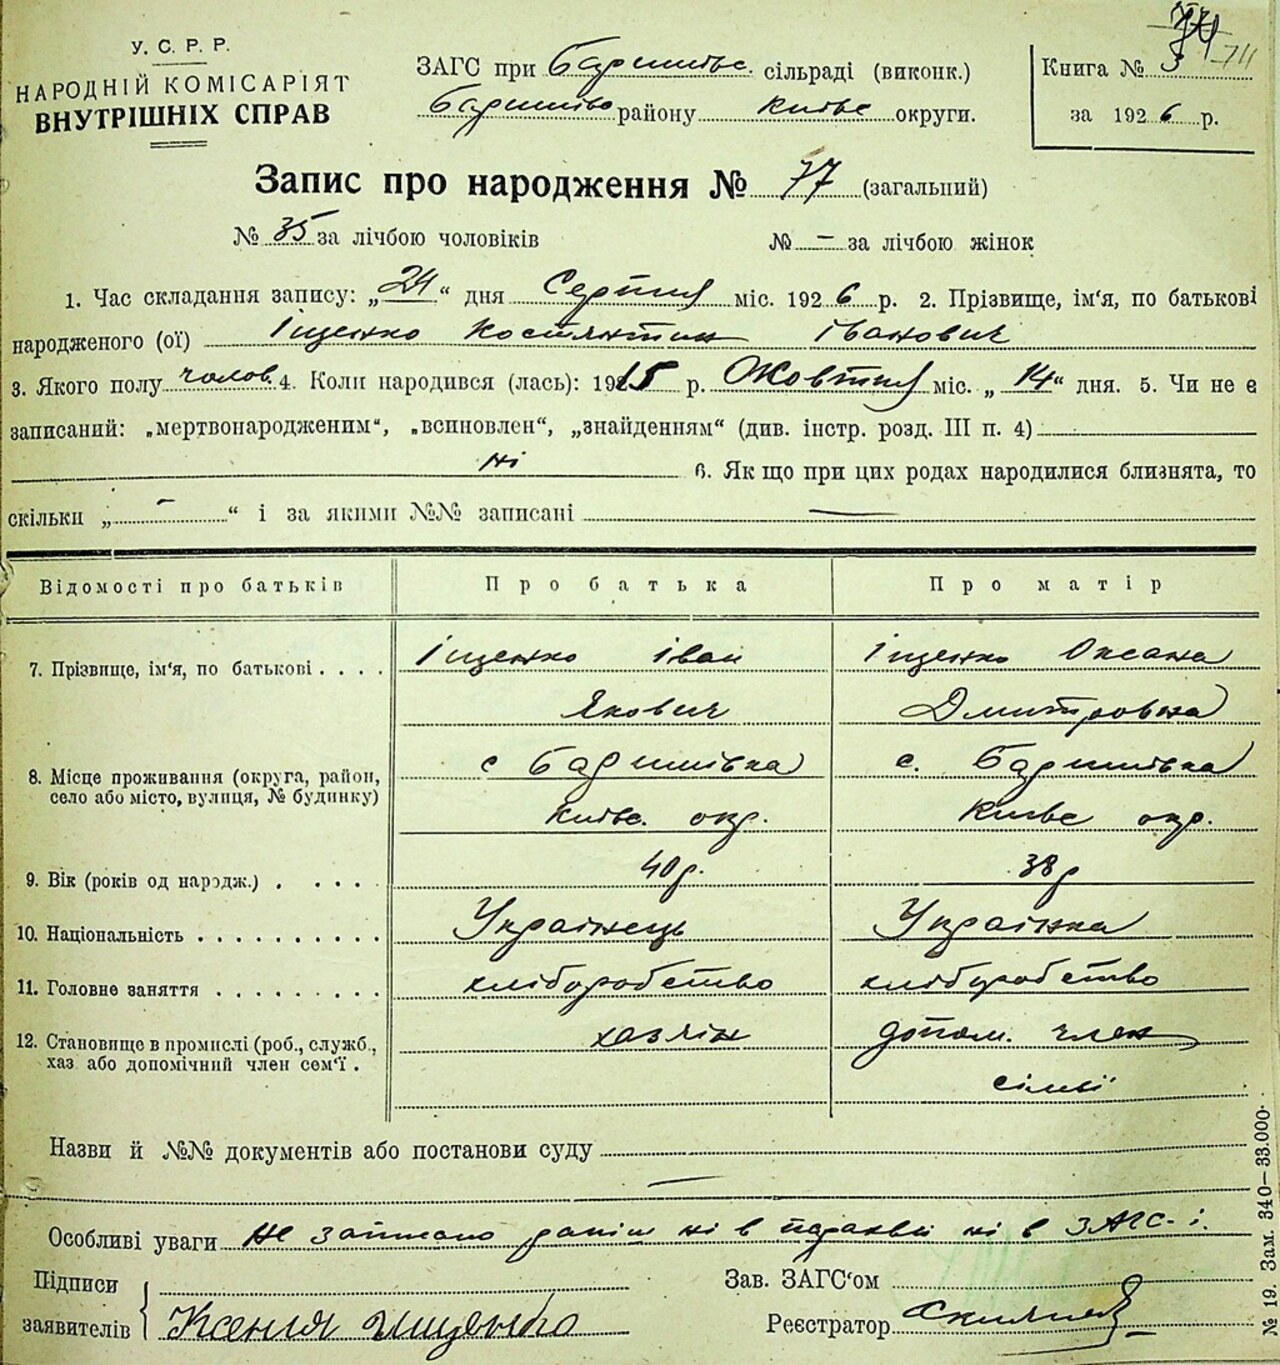 У. С. Р. Р.
НАРОДНІЙ КОМІСАРІЯТ
ВНУТРІШНІХ СПРАВ
ЗАГС при Баришівс. сільраді (виконк.)
Баришівс району Київс округи.
74
Книга № 3
за 1926 р.
Запис про народження № 77 (загальний)
№ 35 за лічбою чоловіків № – за лічбою жінок
1. Час складання запису: „24“ дня Серпня міс. 1926 р. 2. Прізвище, ім‘я, по батькові
народженого (ої) Іщенко Костянтин Іванович
3. Якого полу чолов. 4. Коли народився (лась): 1915 р. Жовтня міс. „14“ дня. 5. Чи не є
записаний: „мертвонародженим“, „всиновлен“, „знайденням“ (див. інстр. розд. III п. 4)
ні 6. Як що при цих родах народилися близнята, то
скільки „ – “ і за якими №№ записані —
Відомості про батьків Про батька Про матір
7. Прізвище, ім‘я, по батькові . . . . Іщенко Іван Іщенко Оксана
Якович Дмитровна
8. Місце проживання (округа, район, село або місто, вулиця, № будинку) с Баришівка с. Баришівка
Київс. окр. Київс окр.
9. Вік (років од народж.) . . . . 40 р. 38 р
10. Національність . . . . . . . . . . Українець Українка
11. Головне заняття . . . . . . . . . хліборобство хліборобство
12. Становище в промислі (роб., служб., хаз або допомічний член сем‘ї . хазяїн допом. член
сімьї
Назви й №№ документів або постанови суду
—
Особливі уваги Не записано раніш ні в параквії ні в ЗАГС-і.
Підписи
заявителів Ксения Ищенко
Зав. ЗАГС‘ом
Реєстратор
№ 19. Зам. 340–33.000.